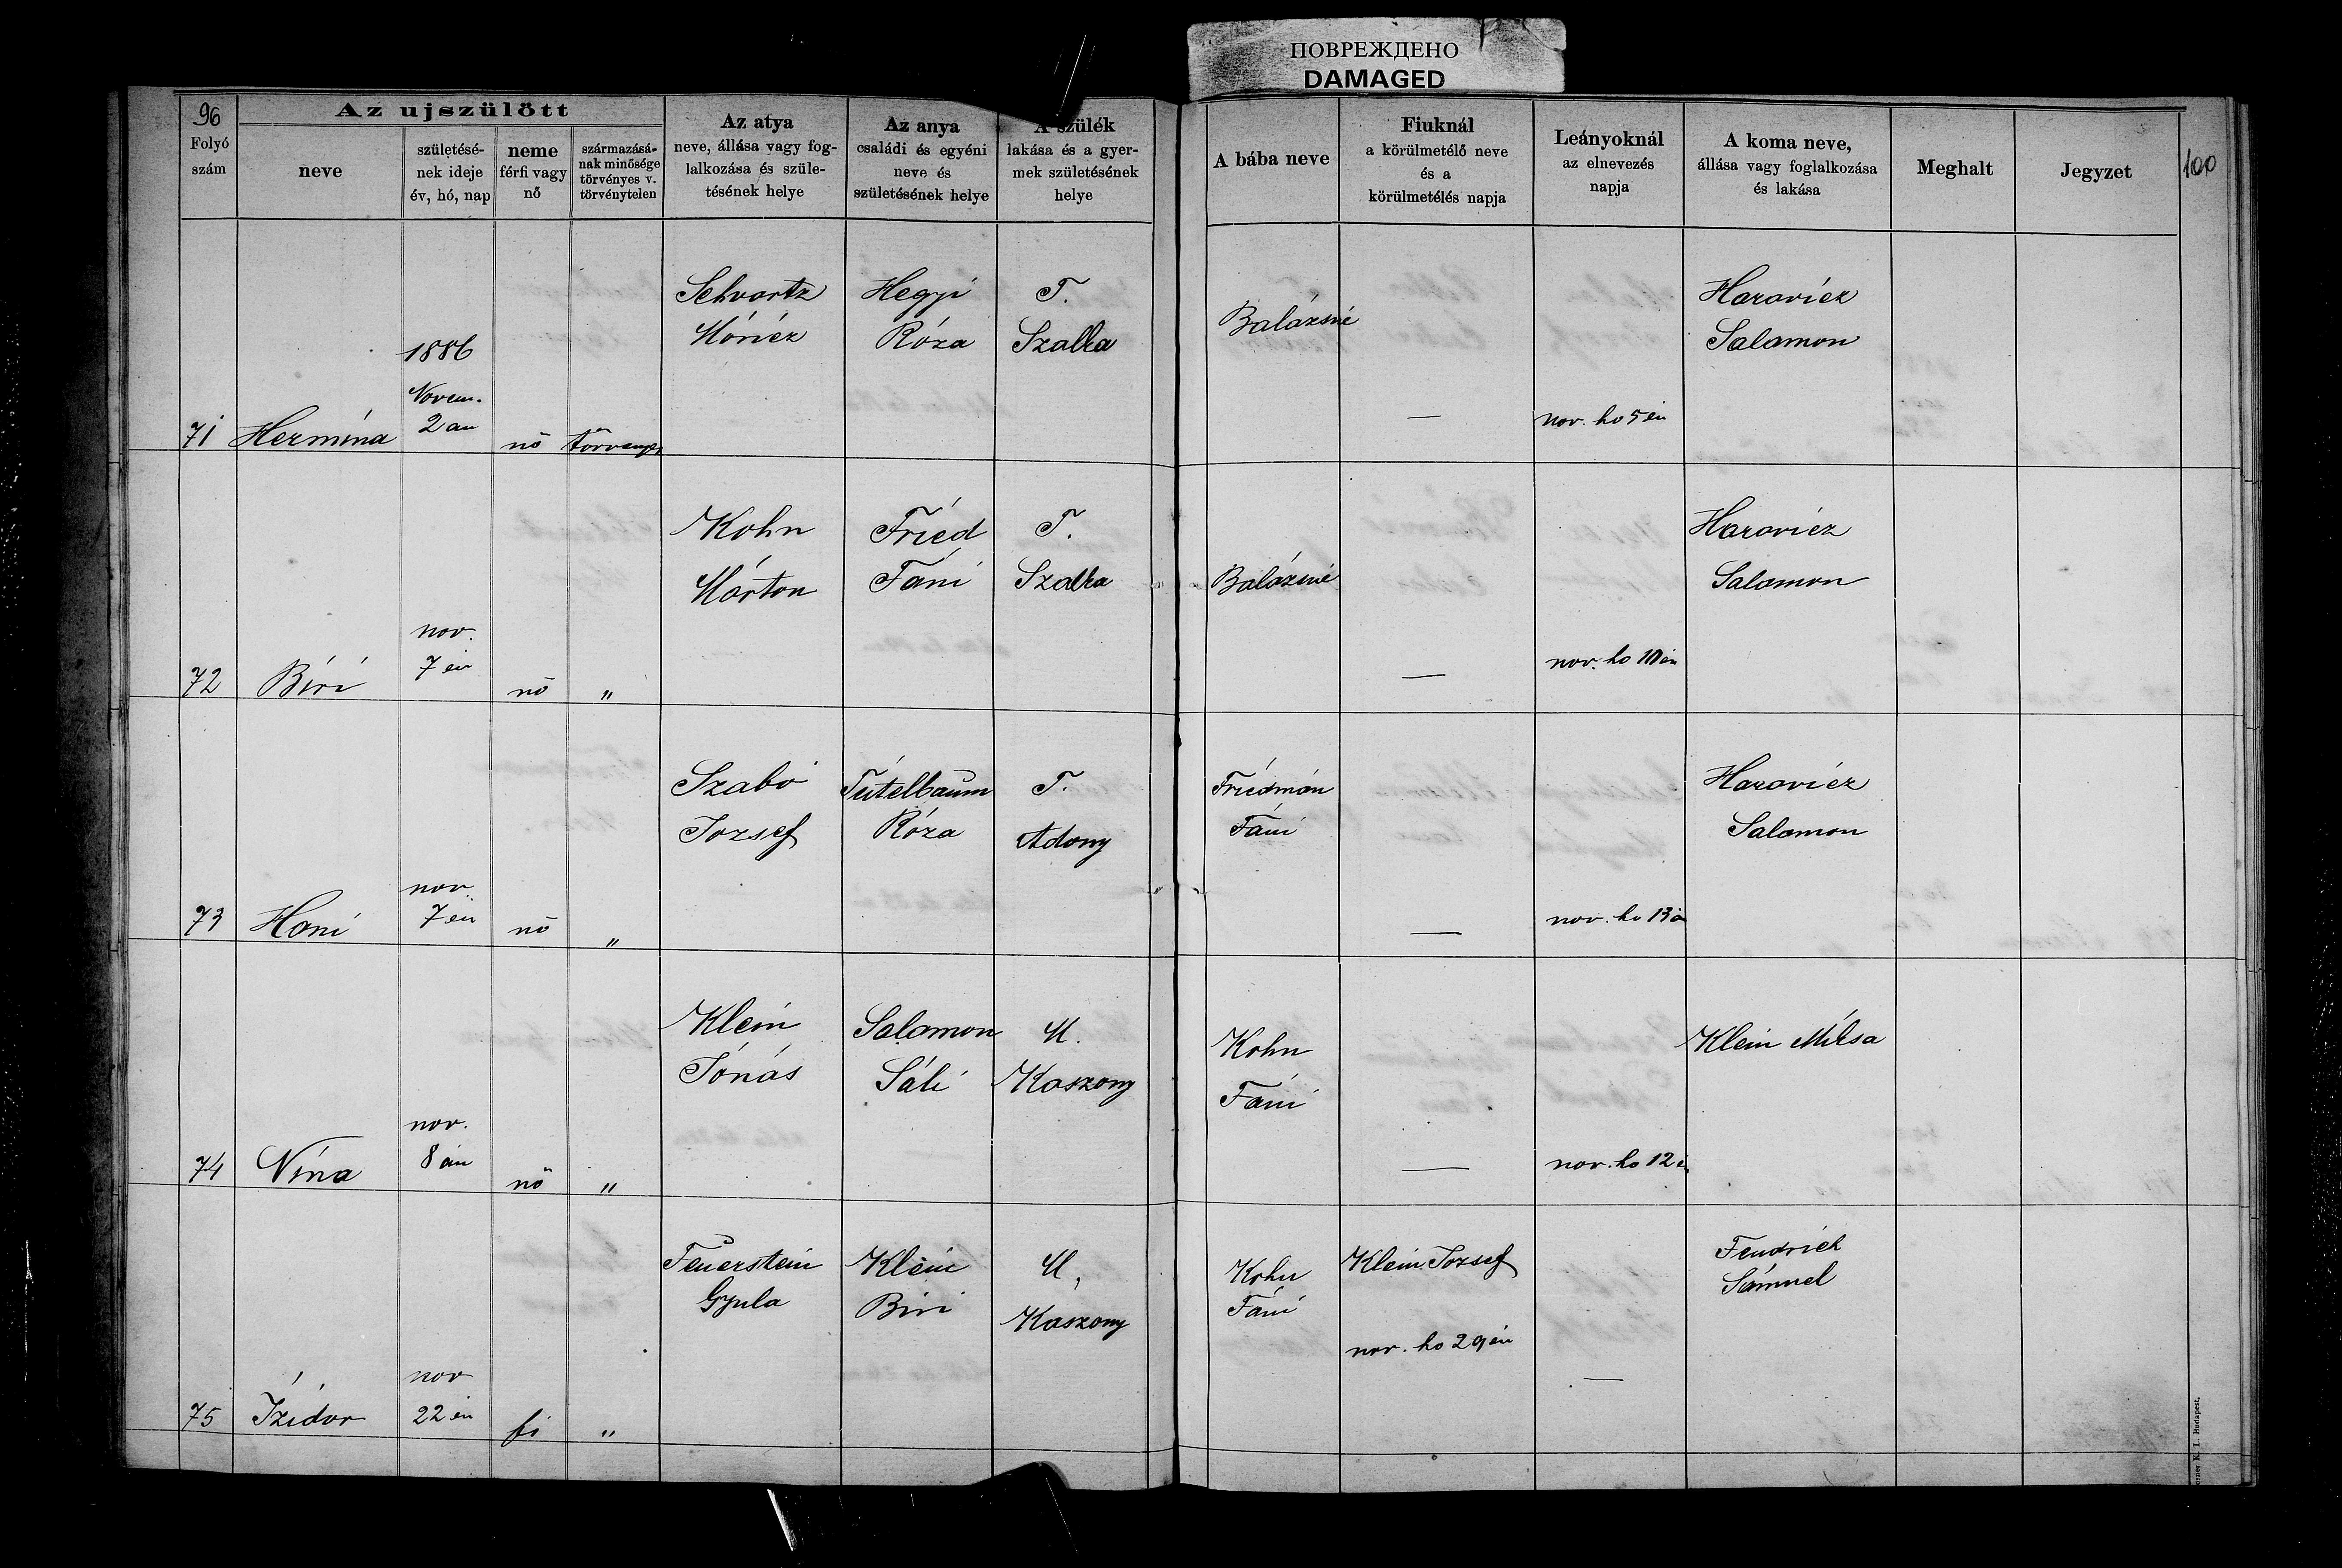 ПОВРЕЖДЕНО
DAMAGED
96
Folyó
szám
Az ujszülött
neve
születésé-
nek ideje
év, hó, nap
neme
férfi vagy
nő
származásá-
nak minősége
törvényes v.
törvénytelen
Az atya
neve, állása vagy fog-
lalkozása és szüle-
tésének helye
Az anya
családi és egyéni
neve és
születésének helye
A szülék
lakása és a gyer-
mek születésének
helye
A bába neve
Fiuknál
a körülmetélő neve
és a
körülmetélés napja
Leányoknál
az elnevezés
napja
A koma neve,
állása vagy foglalkozása
és lakása
Meghalt
Jegyzet
100
71
Hermina
1886
Novem.
2 an
nő
törvenyes
Schvartz
Móricz
Hegyi
Róza
T.
Szalka
Balázsné
—
nov. ho 5 én
Haravicz
Salamon
72
Biri
nov.
7 én
nő
"
Kohn
Márton
Fried
Fáni
T.
Szalka
Balázsné
—
nov. ho 10 én
Haravicz
Salamon
73
Hani
nov.
7 én
nő
"
Szabó
Jozsef
Teitelbaum
Róza
T.
Adony
Friedmán
Fáni
—
nov. ho 13 á
Haravicz
Salamon
74
Nina
nov.
8 án
nő
"
Klein
Jónás
Salamon
Sáli
M.
Kaszony
Kohn
Fáni
—
nov. ho 12 é
Klein Miksa
75
Izidor
nov
22 én
fi
"
Feuerstein
Gyula
Klein
Biri
M.
Kaszony
Kohn
Fáni
Klein Jozsef
nov. ho 29 én
—
Fendrich
Sámuel
K. I. Budapest.